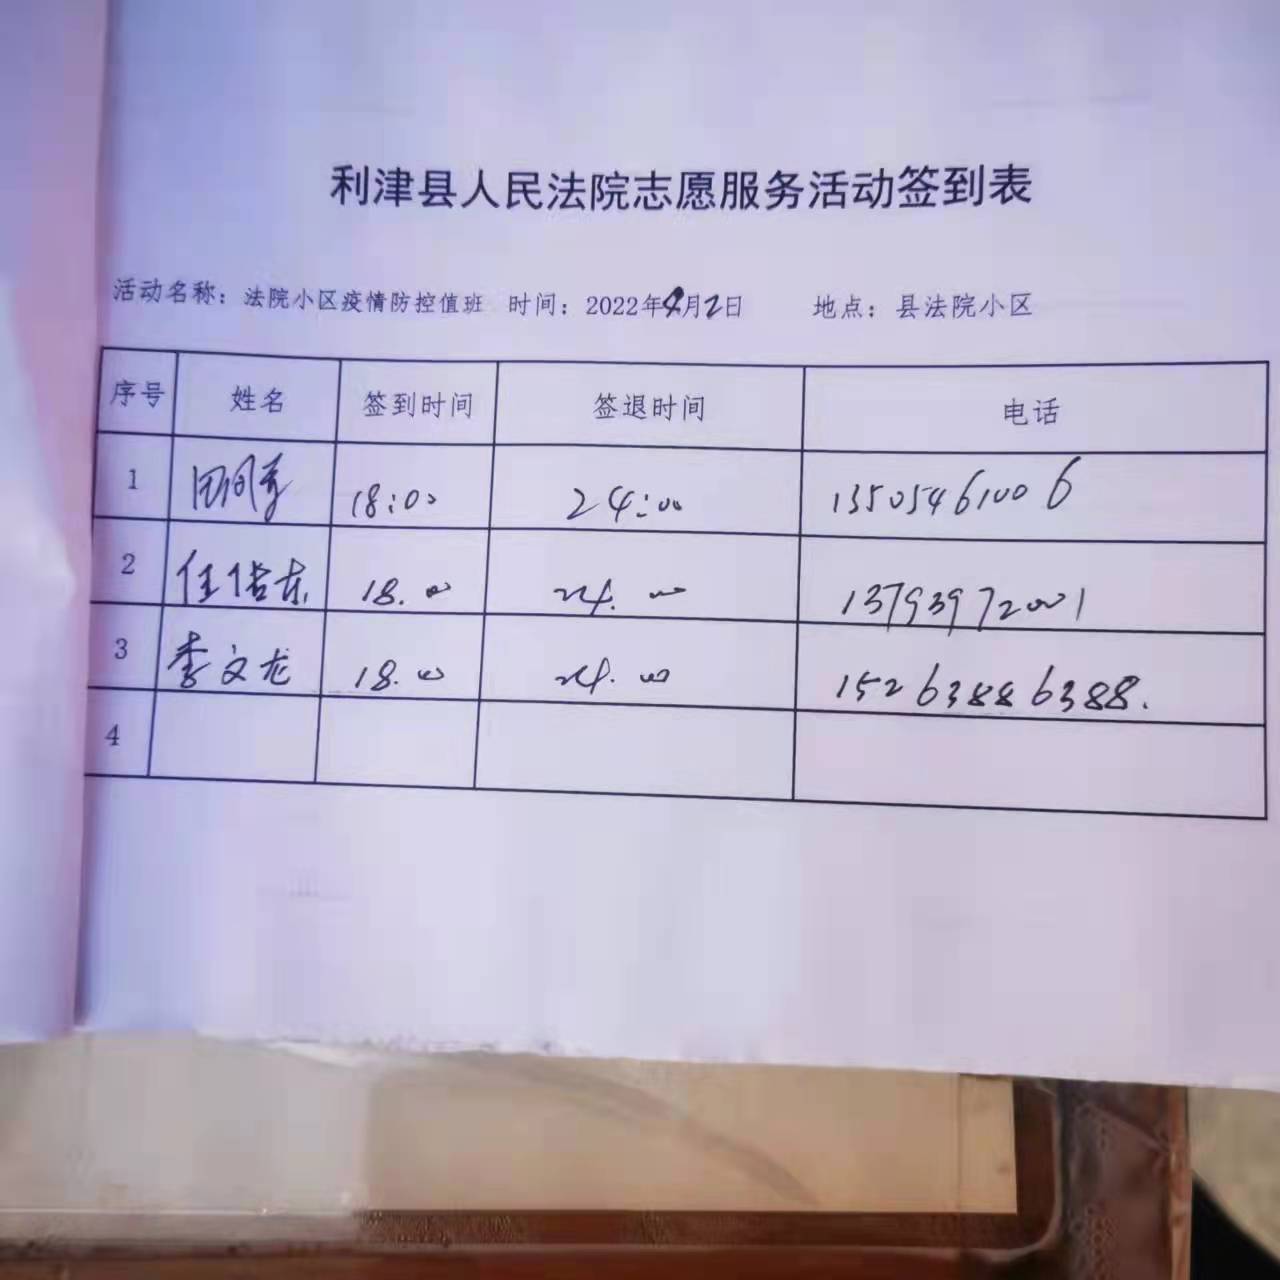 利津县人民法院志愿服务活动签到表
活动名称：法院小区疫情防控值班 时间：2022年4月2日 地点：县法院小区
序号 姓名 签到时间 签退时间 电话
1 18:00 24:00 13505461006
2 18.00 24.00 13793972001
3 李文龙 18.00 24.00 15263886388.
4